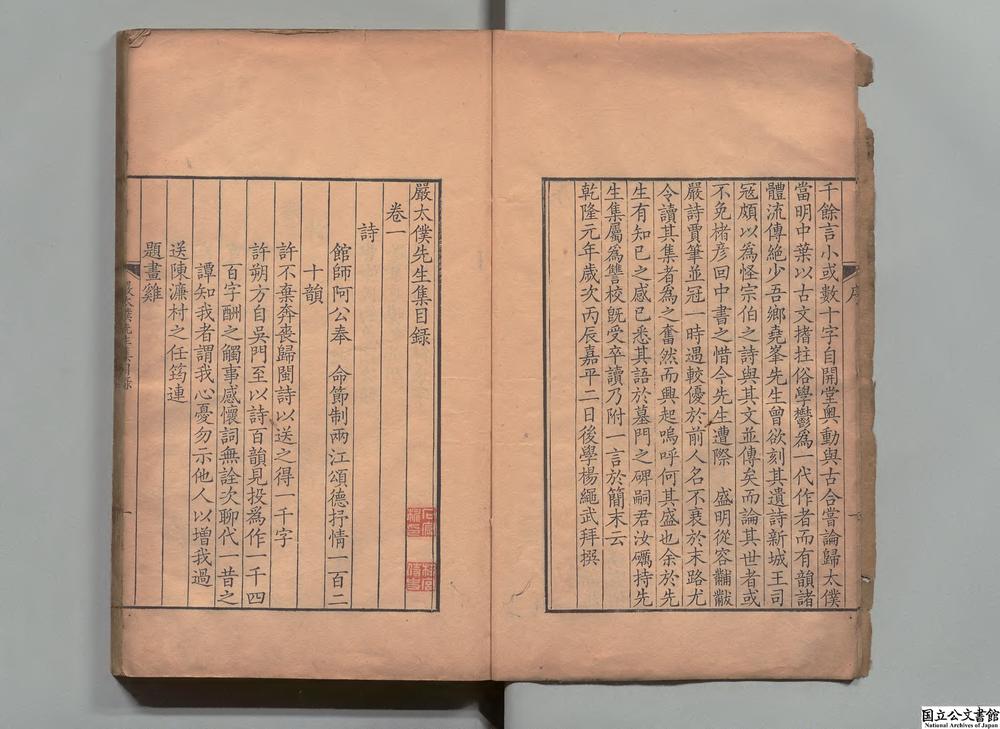 千餘言小或數十字自開堂奧動與古合嘗論歸太僕
當明中葉以古文揩拄俗學鬱爲一代作者而有韻諸
體流傳絕少吾鄉堯峯先生曾欲刻其遺詩新城王司
冦頗以為怪宗伯之詩與其文並傳矣而論其世者或
不免楮彦回中書之惜今先生遭際　盛明從容黼黻
嚴詩賈筆並冠一時遇較優於前人名不衰於末路尤
令讀其集者為之奮然而興起嗚呼何其盛也余於先
生有知已之感已悉其語於墓門之碑嗣君汝礪持先
生集屬爲讐校旣受卒讀乃附一言於簡末云
乾隆元年歲次丙辰嘉平二日後學楊繩武拜撰
序
嚴太僕先生集目録
卷一
詩
館師阿公奉　命節制兩江頌德抒情一百二
十韻
許不棄奔喪歸閩詩以送之得一千字
許朔方自吳門至以詩百韻見投爲作一千四
百字酬之觸事感懷詞無詮次聊代一昔之
譚知我者謂我心憂勿示他人以增我過
送陳濂村之任筠連
題畫雞
嚴太僕先生集目録
一
国立公文書館
National Archives of Japan